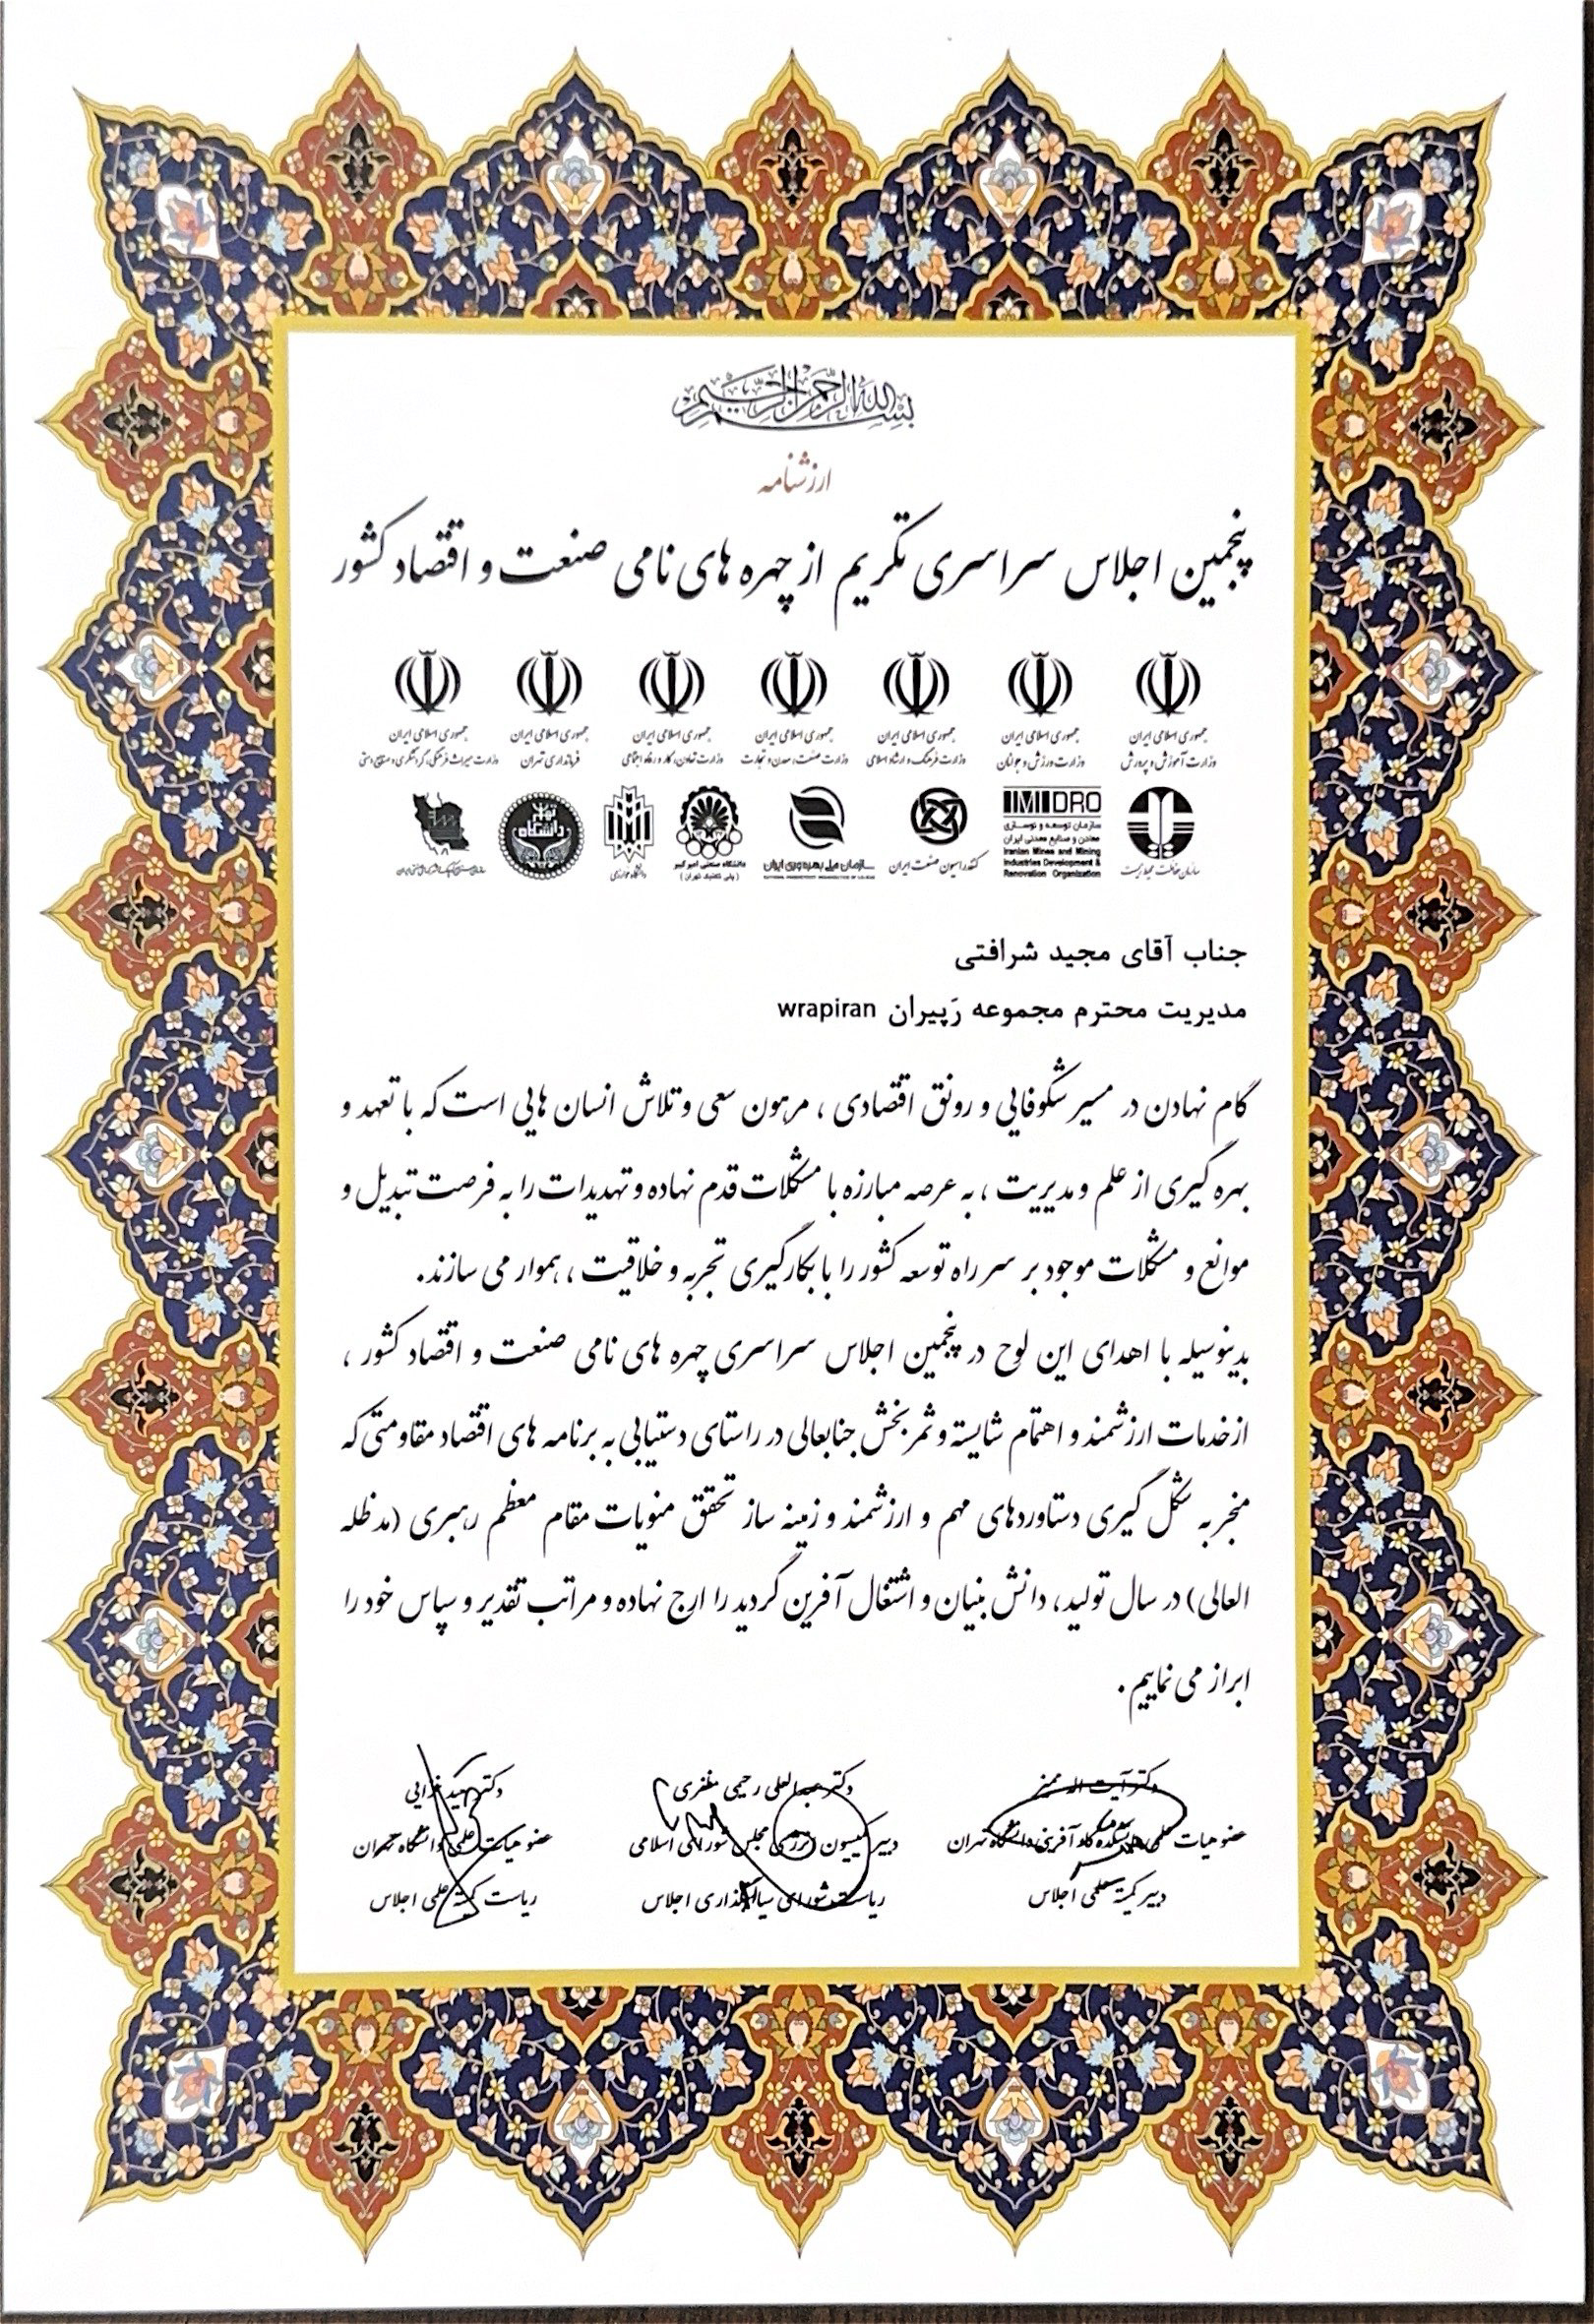 بسم الله الرحمن الرحیم
ارزشنامه
پنجمین اجلاس سراسری تکریم از چهره های نامی صنعت و اقتصاد کشور
جمهوری اسلامی ایران جمهوری اسلامی ایران جمهوری اسلامی ایران جمهوری اسلامی ایران جمهوری اسلامی ایران جمهوری اسلامی ایران جمهوری اسلامی ایران
وزارت آموزش و پرورش وزارت ورزش و جوانان وزارت فرهنگ و ارشاد اسلامی وزارت صنعت، معدن و تجارت وزارت تعاون، کار و رفاه اجتماعی فرمانداری تهران وزارت میراث فرهنگی، گردشگری و صنایع دستی
IMIDRO
سازمان توسعه و نوسازی
معادن و صنایع معدنی ایران
Iranian Mines and Mining
Industries Development &
Renovation Organization
سازمان حفاظت محیط زیست
کنفدراسیون صنعت ایران
سازمان ملی بهره‌وری ایران
دانشگاه صنعتی امیرکبیر
(پلی تکنیک تهران)
دانشگاه خوارزمی
دانشگاه تهران
جناب آقای مجید شرافتی
مدیریت محترم مجموعه رَپیران wrapiran
گام نهادن در مسیر شکوفایی و رونق اقتصادی ، مرهون سعی و تلاش انسان هایی است که با تعهد و
بهره گیری از علم و مدیریت ، به عرصه مبارزه با مشکلات قدم نهاده و تهدیدات را به فرصت تبدیل و
موانع و مشکلات موجود بر سر راه توسعه کشور را با بکارگیری تجربه و خلاقیت ، هموار می سازند.
بدینوسیله با اهدای این لوح در پنجمین اجلاس سراسری چهره های نامی صنعت و اقتصاد کشور ،
از خدمات ارزشمند و اهتمام شایسته و ثمربخش جنابعالی در راستای دستیابی به برنامه های اقتصاد مقاومتی که
منجر به شکل گیری دستاوردهای مهم و ارزشمند و زمینه ساز تحقق منویات مقام معظم رهبری (مدظله
العالی) در سال تولید، دانش بنیان و اشتغال آفرین گردید را ارج نهاده و مراتب تقدیر و سپاس خود را
ابراز می نماییم.
دکتر آیت اله ممیز دکتر عبدالعلی رحیمی مظفری دکتر
عضو هیات علمی دانشکده کارآفرینی دانشگاه تهران دبیر کمیسیون انرژی مجلس شورای اسلامی عضو هیات علمی دانشگاه تهران
دبیر کمیته علمی اجلاس ریاست شورای سیاستگذاری اجلاس ریاست کمیته علمی اجلاس